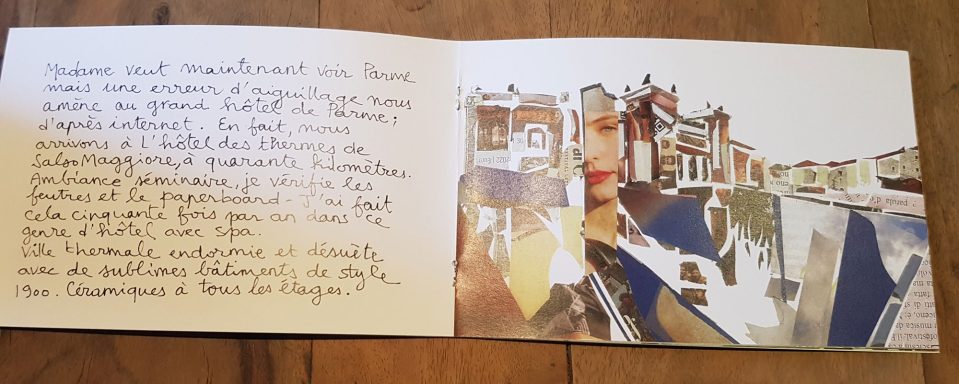 Madame veut maintenant voir Parme
mais une erreur d'aiguillage nous
amène au grand hôtel de Parme ;
d'après internet. En fait, nous
arrivons à L'hôtel des thermes de
SalsoMaggiore, à quarante kilomètres.
Ambiance séminaire, je vérifie les
feutres et le paperboard - J'ai fait
cela cinquante fois par an dans ce
genre d'hôtel avec spa.
Ville thermale endormie et désuète
avec de sublimes bâtiments de style
1900. Céramiques à tous les étages.